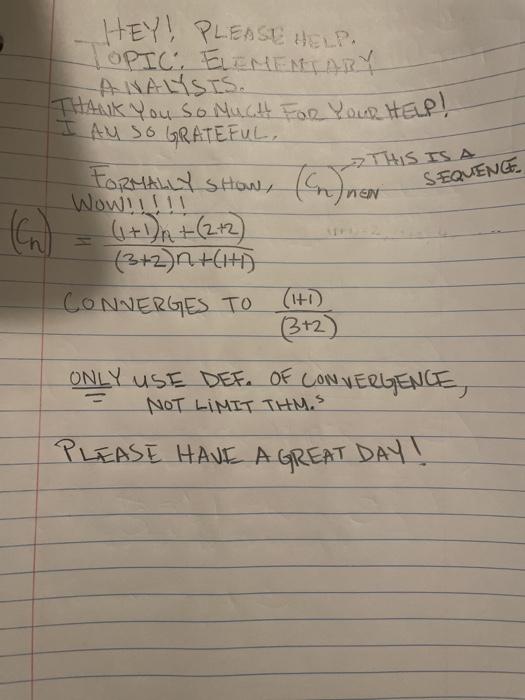 HEY! PLEASE HELP.
TOPIC: ELEMENTARY
ANALYSIS.
THANK YOU SO MUCH FOR YOUR HELP!
I AM SO GRATEFUL.
FORMALLY SHOW, (Cn)n∈N → THIS IS A SEQUENCE.
WOW!!!!!
(Cn) = ((1+1)n+(2+2))/((3+2)n+(1+1))
CONVERGES TO (1+1)/(3+2)
ONLY USE DEF. OF CONVERGENCE,
NOT LIMIT THM.S
PLEASE HAVE A GREAT DAY!